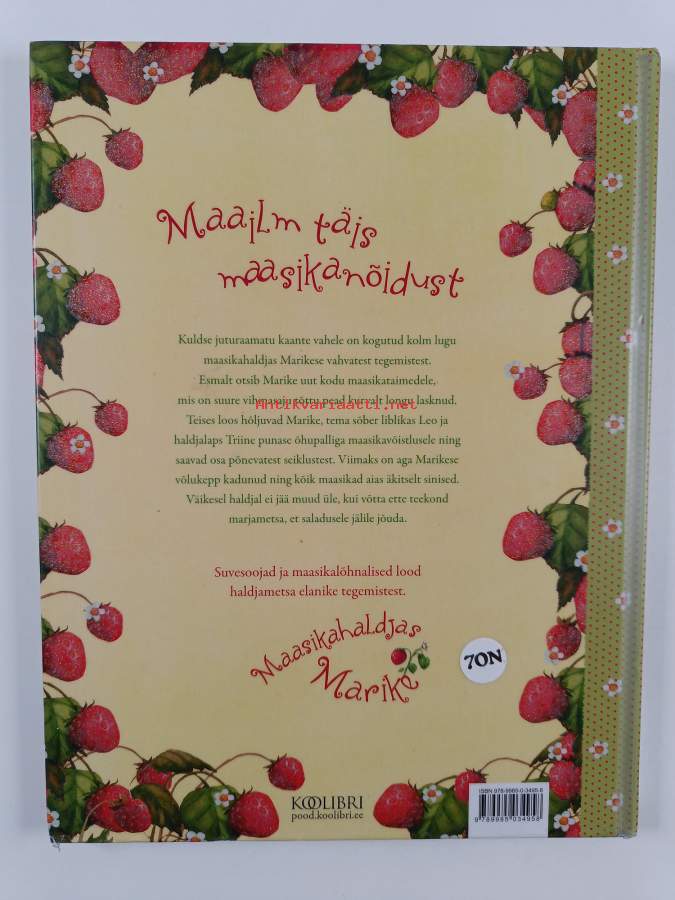 Maailm täis
maasikanõidust
Kuldse juturaamatu kaante vahele on kogutud kolm lugu
maasikahaldjas Marikese vahvatest tegemistest.
Esmalt otsib Marike uut kodu maasikataimedele,
mis on suure vihmasaju tõttu pead kurvalt longu lasknud.
Antikvariaatti.net
Teises loos hõljuvad Marike, tema sõber liblikas Leo ja
haldjalaps Triine punase õhupalliga maasikavõistlusele ning
saavad osa põnevatest seiklustest. Viimaks on aga Marikese
võlukepp kadunud ning kõik maasikad aias äkitselt sinised.
Väikesel haldjal ei jää muud üle, kui võtta ette teekond
marjametsa, et saladusele jälile jõuda.
Suvesoojad ja maasikalõhnalised lood
haldjametsa elanike tegemistest.
Maasikahaldjas
Marike
7ON
KOOLIBRI
pood.koolibri.ee
ISBN 978-9985-0-3495-8
9 789985 034958